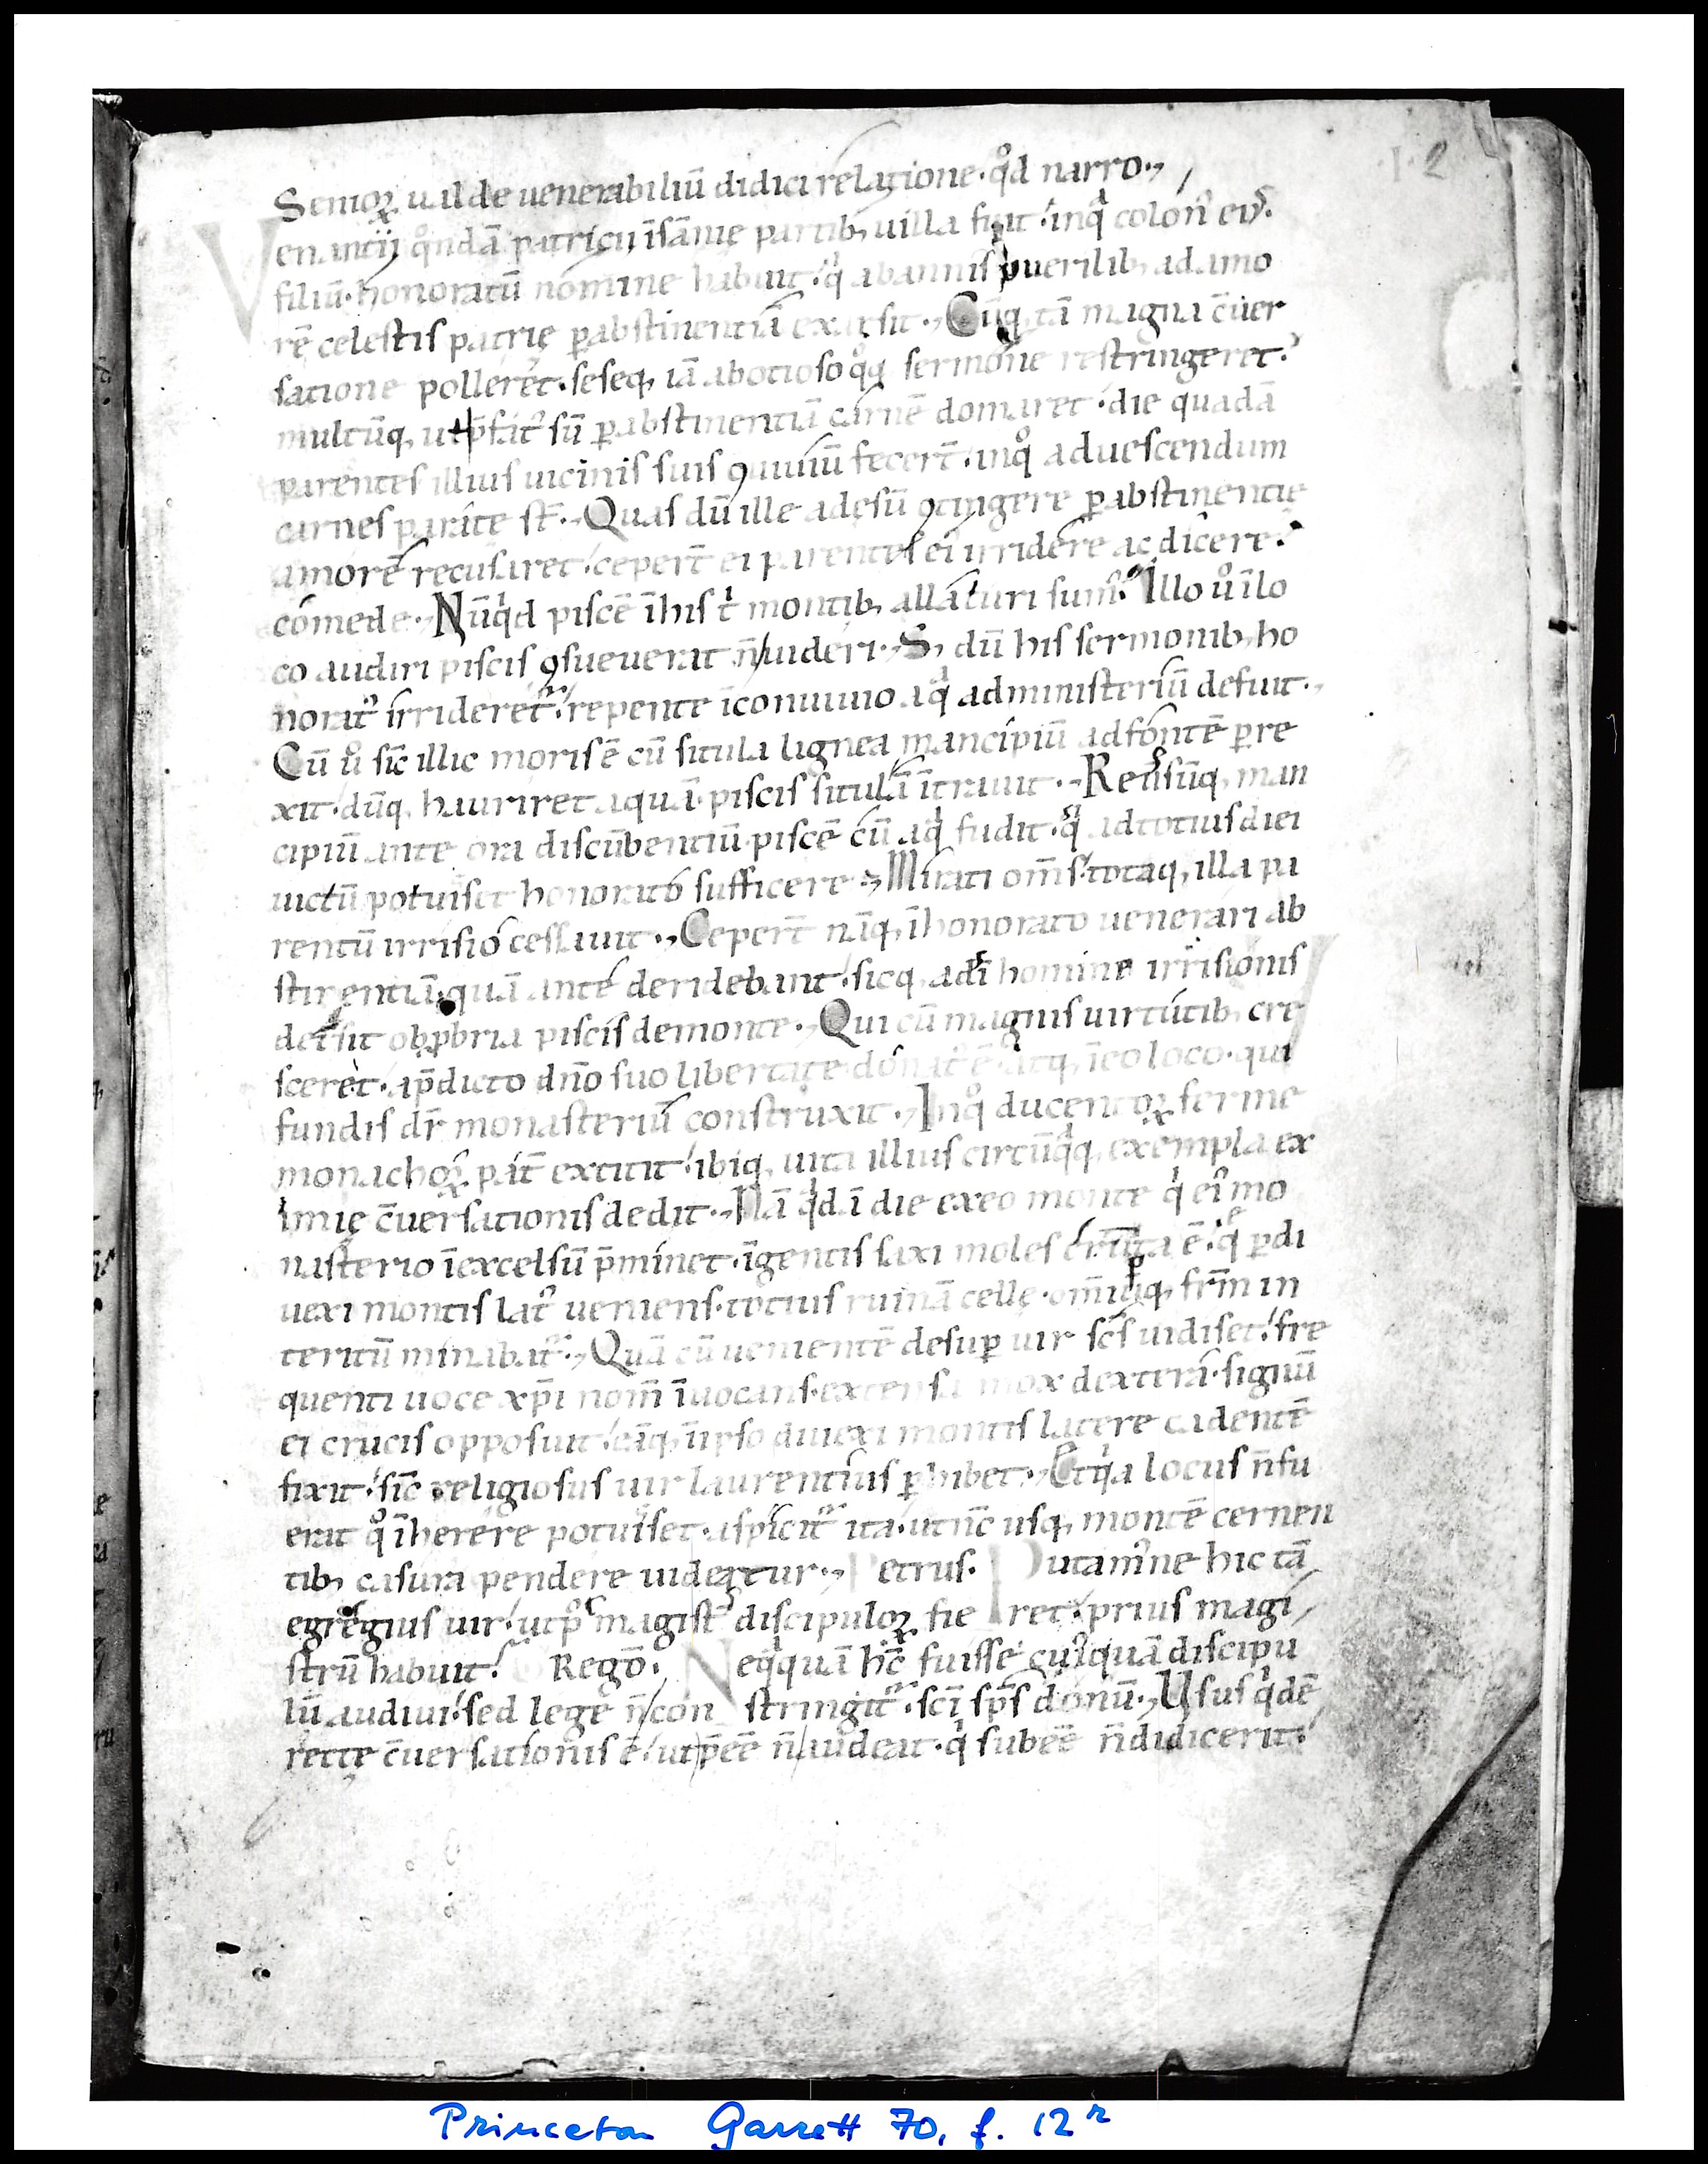 12
Senioꝝ ualde uenerabiliū didici relatione· qͦd narro·,
Venantij qͦndā patricij ī sānię partib; uilla fuit· in qͣ colonꝰ eiꝰ·
filiū· honoratū nomine habuit· qͥ ab annis puerilib; ad amo
rē celestis patrię ꝑ abstinentiā exarsit·, Cūq; tā magna c̄uer
satione polleret· seseq; iā ab otioso qͦq; sermone restringeret·
multūq; ut p̄fatꝰ sū ꝑ abstinentiā carnē domaret· die quadā
parentes illius uicinis suis ꝯuiuiū fecer̄t· in qͦ ad uescendum
carnes paratę st̄·, Quas dū ille ad esū ꝯtingere ꝑ abstinentię
amorē recusaret· ceper̄t ei parentes eiꝰ irridere ac dicere·
comede· Nūqͥd piscē ī his t̉ montib; allaturi sumꝰ· Illo ū̉ ī lo
co audiri piscis ꝯsueuerat n̄ uideri·, S; dū his sermonib; ho
noratꝰ irrideret᷑· repente ī conuiuio aqͣ ad ministeriū defuit·,
Cū ū̉ sic̄ illic moris ē cū situla lignea mancipiū ad fontē ꝑre
xit· dūq; hauriret aquā· piscis situlā ītrauit·, Reuͬsūq; man
cipiū ante ora discūbentiū· piscē cū aqͣ fudit· qͥ ad totius diei
uictū potuiset honorato sufficere·, Mirati om̄s· totaq; illa pa
rentū irrisio cessauit·, Ceper̄t nāq; ī honorato uenerari ab
stinentiā· quā ante deridebant· sicq; a dī homine irrisionis
detͬsit obꝓbria piscis de monte·, Qui cū magnis uirtutib; cre
sceret· a p̄dicto dn̄o suo libertate donatꝰ ē· atq; ī eo loco· qui
fundis dr̄ monasteriū construxit·, In qͦ ducentoꝝ ferme
monachoꝝ pat̄ extitit· ibiq; uita illius circūqͣq; exempla ex
imię c̄uersationis dedit·, Nā qͣdā die ex eo monte qͥ eiꝰ mo
nasterio ī excelsū p̄minet· īgentis saxi moles erūpta ē· q̄ ꝑ di
uexi montis latꝰ ueniens· totius ruinā cellę· om̄iūq; fr̄m in
teritū minabat᷑·, Quā cū uenientē desuꝑ uir sc̄s uidiset· fre
quenti uoce xp̄i nom̄ īuocans· extensa mox dextera· signū
ei crucis opposuit· eāq; ī ipso diuexi montis latere cadentē
fixit· sic̄ religiosus uir laurentius ꝑhibet·, Et qͥa locus n̄ fu
erat qͦ īherere potuiset· aspicit᷑ ita· ut nc̄ usq; montē cernen
tib; casura pendere uideatur·, Petrus· Putamꝰne hic tā
egregius uir· ut pͦ magist̄ discipuloꝝ fieret· prius magi
strū habuit· Rego᷒· Neqͣquā hc̄ fuisse cuiꝰquā discipu
lū audiui· sed lege n̄ constringit᷑· sc̄i sp̄s donū·, Usus qͥdē
rectę c̄uersationis ē· ut p̄eē n̄ audeat· qͥ subeē n̄ didicerit·
Princeton Garrett 70, f. 12ʳ